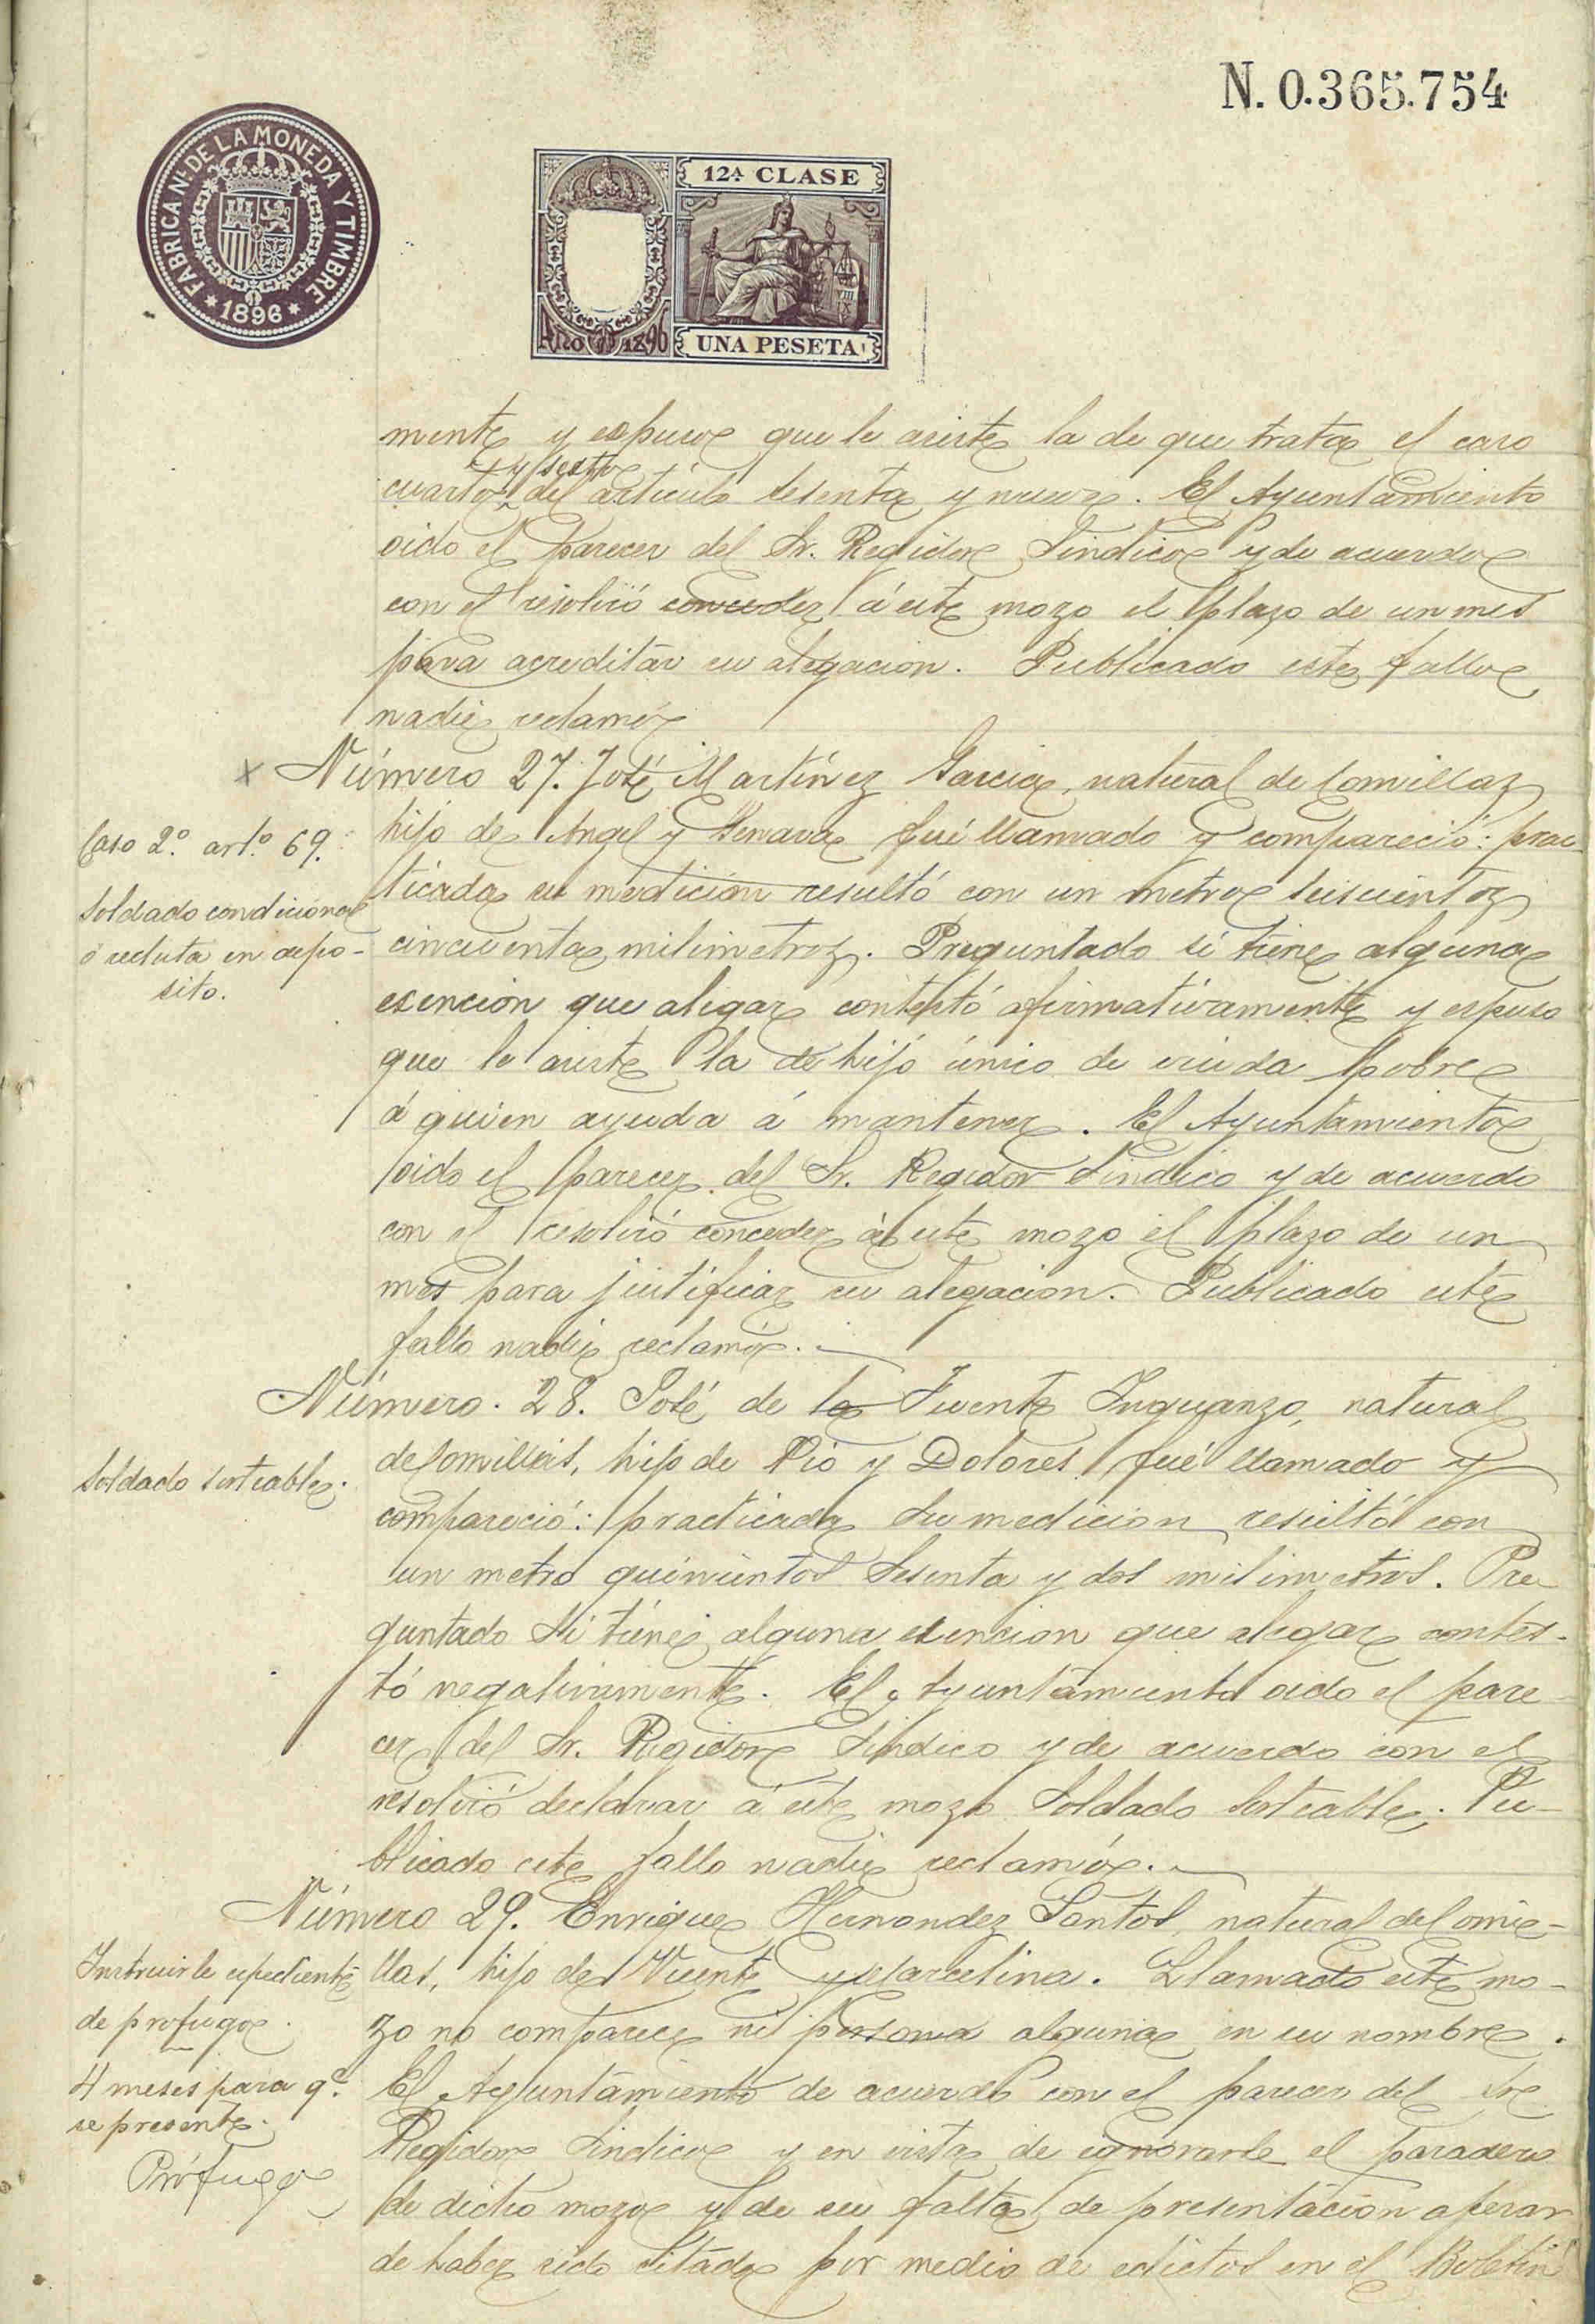 N. 0.365.754
FABRICA N. DE LA MONEDA Y TIMBRE
* 1896 *
12ª CLASE
Año de 1896
UNA PESETA
mente y espuso que le asiste la de que trata el caso
y sesto
cuarto del artículo sesenta y nueve. El Ayuntamiento
oido el parecer del Sr. Regidor Sindico y de acuerdo
con el resolvió conceder á este mozo el plazo de un mes
para acreditar su alegacion. Publicado este fallo
nadie reclamó
x Número 27. José Martínez Garcia, natural de Comillas
hijo de Angel y Genara fué llamado y compareció: prac
Caso 2.º art.º 69.
ticada su medición resultó con un metro seiscientos
Soldado condicional
cincuenta milimetros. Preguntado si tiene alguna
ó recluta en depo-
sito.
esencion que alegar contestó afirmativamente y espuso
que le asiste la de hijo único de viuda pobre
á quien ayuda á mantener. El Ayuntamiento
oido el parecer del Sr. Regidor Sindico y de acuerdo
con el resolvió conceder á este mozo el plazo de un
mes para justificar su alegacion. Publicado este
fallo nadie reclamó.
Número. 28. José de la Fuente Inguanzo, natural
de Comillas, hijo de Pío y Dolores fué llamado y
Soldado sorteable.
compareció: practicada su medicion resultó con
un metro quinientos sesenta y dos milimetros. Pre
guntado si tiene alguna esencion que alegar contes-
tó negativamente. El Ayuntamiento oido el pare
cer del Sr. Regidor Sindico y de acuerdo con el
resolvió declarar á este mozo Soldado sorteable. Pu-
blicado este fallo nadie reclamó.
Número 29. Enrique Hernandez Santos, natural de Comi-
llas, hijo de Vicente y Marcelina. Llamado este mo-
Instruirle espediente
de profugo.
zo no comparece ni persona alguna en su nombre.
4 meses para q.e
El Ayuntamiento de acuerdo con el parecer del Sr.
se presente.
Regidor Sindico y en vista de ignorarse el paradero
Prófugo
de dicho mozo y de su falta de presentación apesar
de haber sido citado por medio de edictos en el Boletin